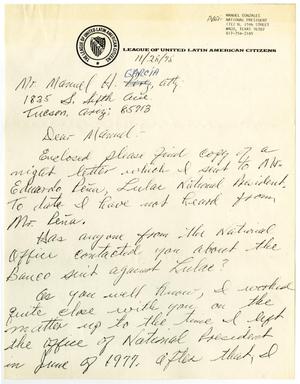 Past:
MANUEL GONZALES
NATIONAL PRESIDENT
WACO, TEXAS
LEAGUE OF UNITED LATIN AMERICAN CITIZENS
11/28/78
GARCIA
Mr. Manuel H. atty
1835 S. Sixth Ave
Tucson, Ariz. 85713
Dear Manuel -
Enclosed please find copy of a
night letter which I sent to Mr.
Eduardo Peña, Lulac National President.
To date I have not heard from
Mr. Peña.
Has anyone from the National
Office contacted you about the
Banco suit against Lulac?
As you well know, I worked
quite close with you on the
matter up to the time I left
the office of National President
in June of 1977. After that, I